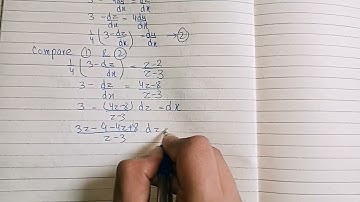 3 - 4dy/dx = dz/dx
3 - dz/dx = 4dy/dx
1/4 (3 - dz/dx) = dy/dx → ②
Compare ① & ②
1/4 (3 - dz/dx) = z-2/z-3
3 - dz/dx = 4z-8/z-3
3 - (4z-8)/z-3 dz = dx
3z-4-4z+8/z-3 dz =